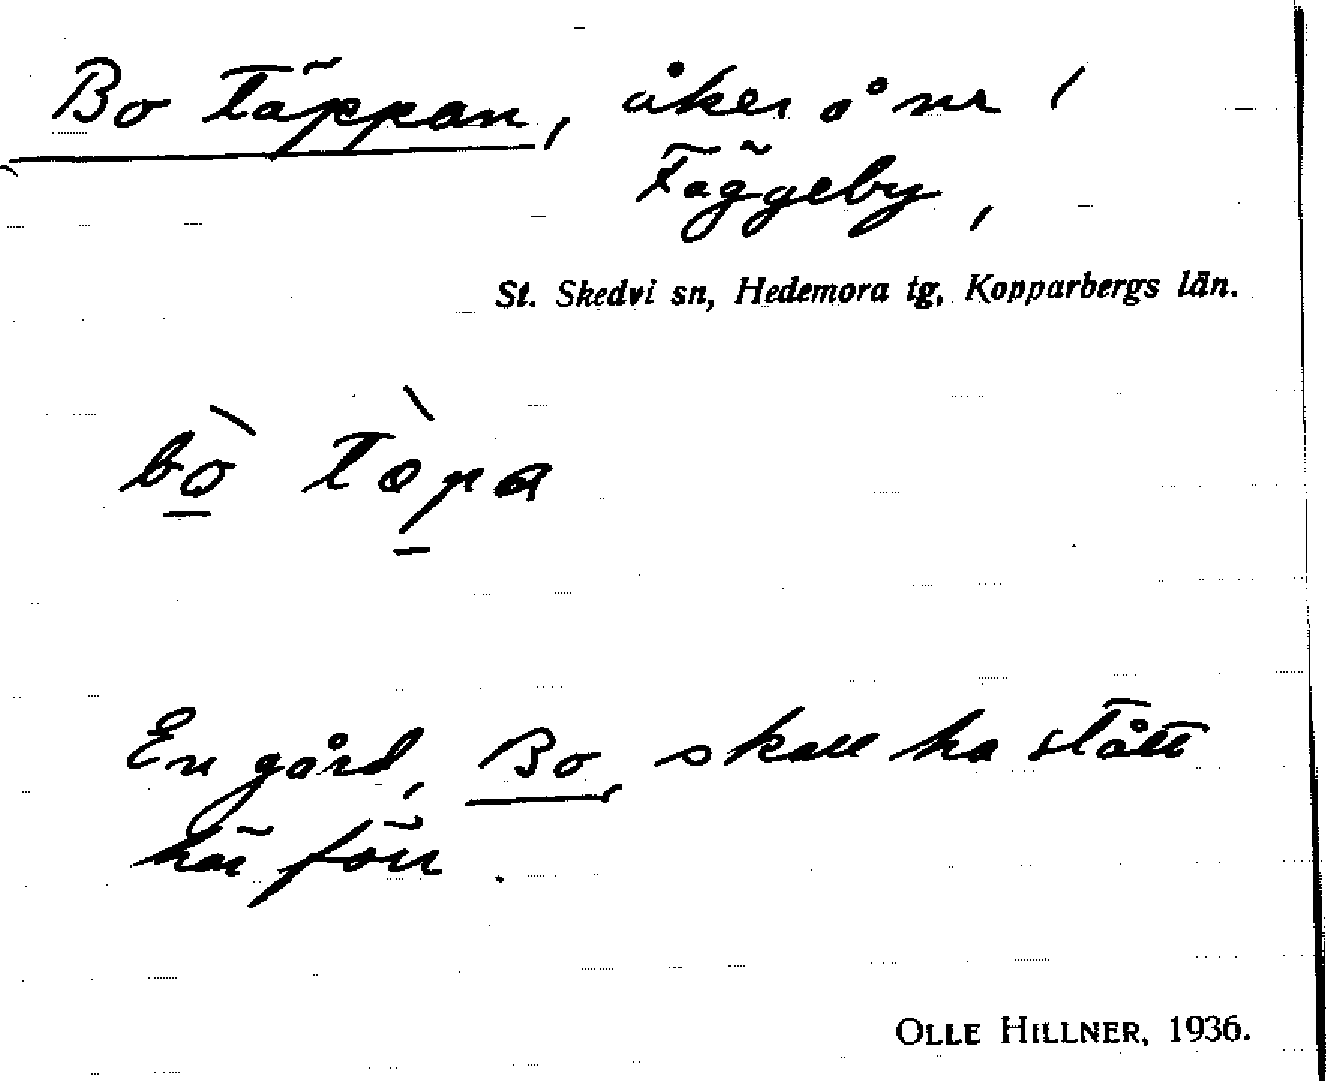 Bo täppan, åker å nr 1
Fäggeby,
St. Skedvi sn, Hedemora tg, Kopparbergs län.
bò tɛ̀pa
En gård, Bo, skall ha stått
här förr.
OLLE HILLNER, 1936.